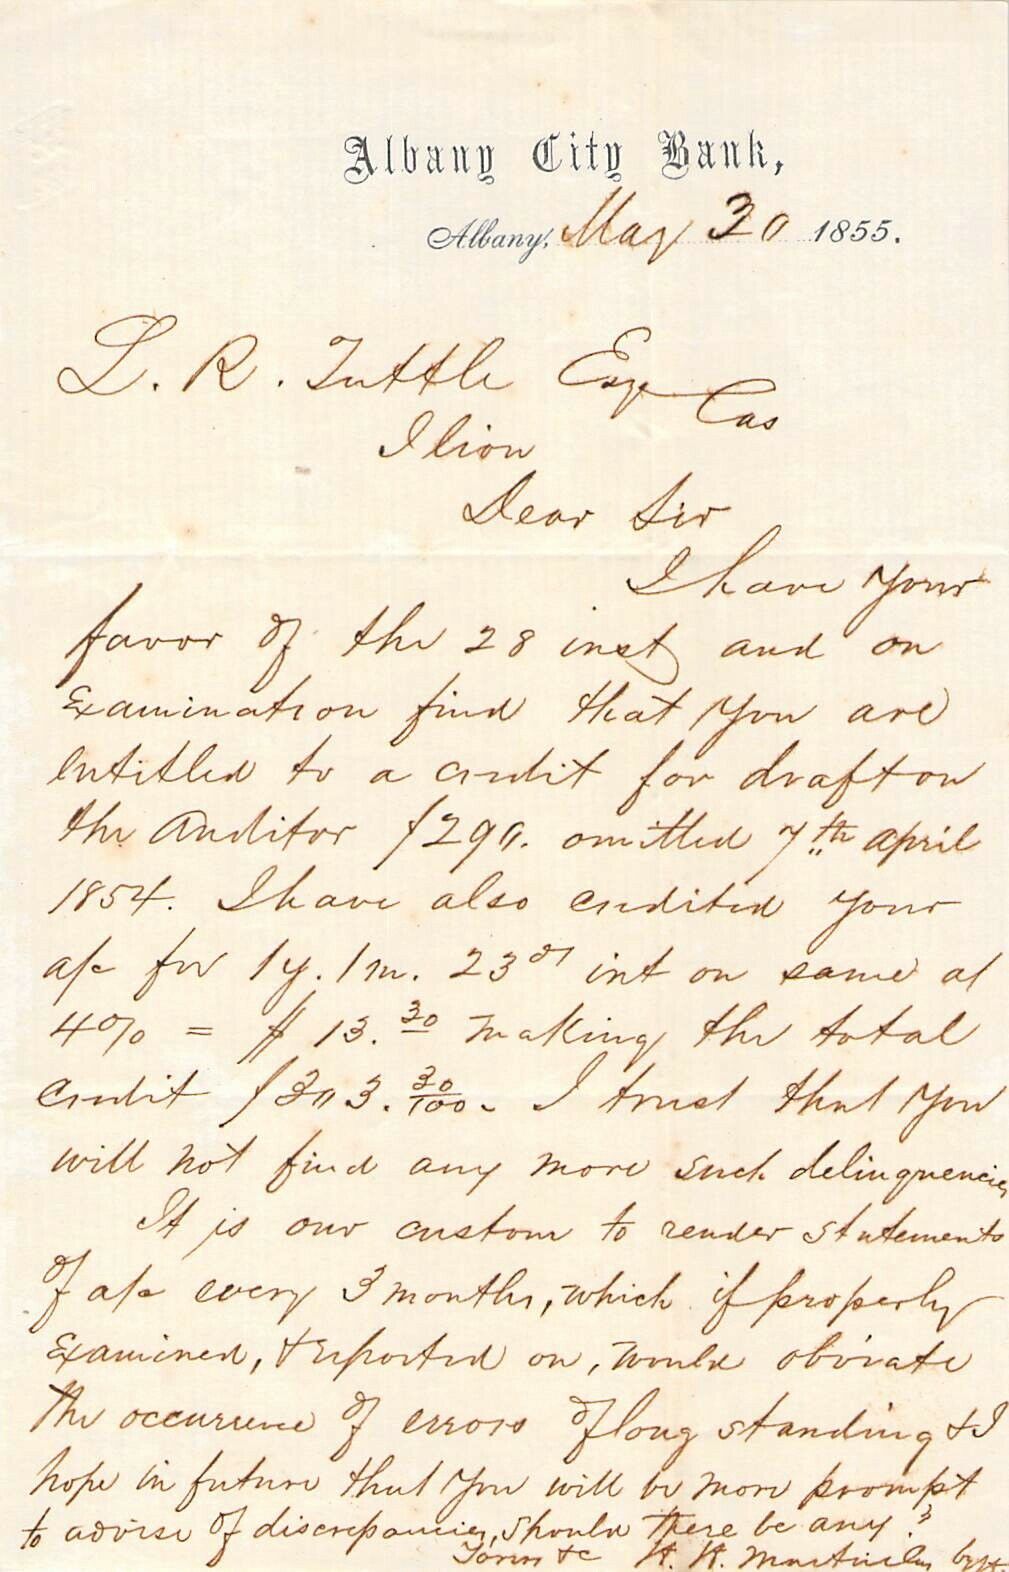 Albany City Bank,
Albany, May 30 1855.
L. R. Tuttle Esqr Cas
Ilion
Dear Sir
I have your
favor of the 28 inst and on
Examination find that you are
entitled to a credit for draft on
the Auditor $290. omitted 7th april
1854. I have also credited your
a/c for 1 y. 1 m. 23 ds int on same at
4% = $ 13.30 making the total
credit $303.30/100. I trust that you
will not find any more such delinquencies
It is our custom to render statements
of a/c every 3 months, which if properly
Examined, & reported on, would obviate
the occurrence of errors of long standing & I
hope in future that you will be more prompt
to advise of discrepancies, should there be any.
Yours &c H. H. Martin